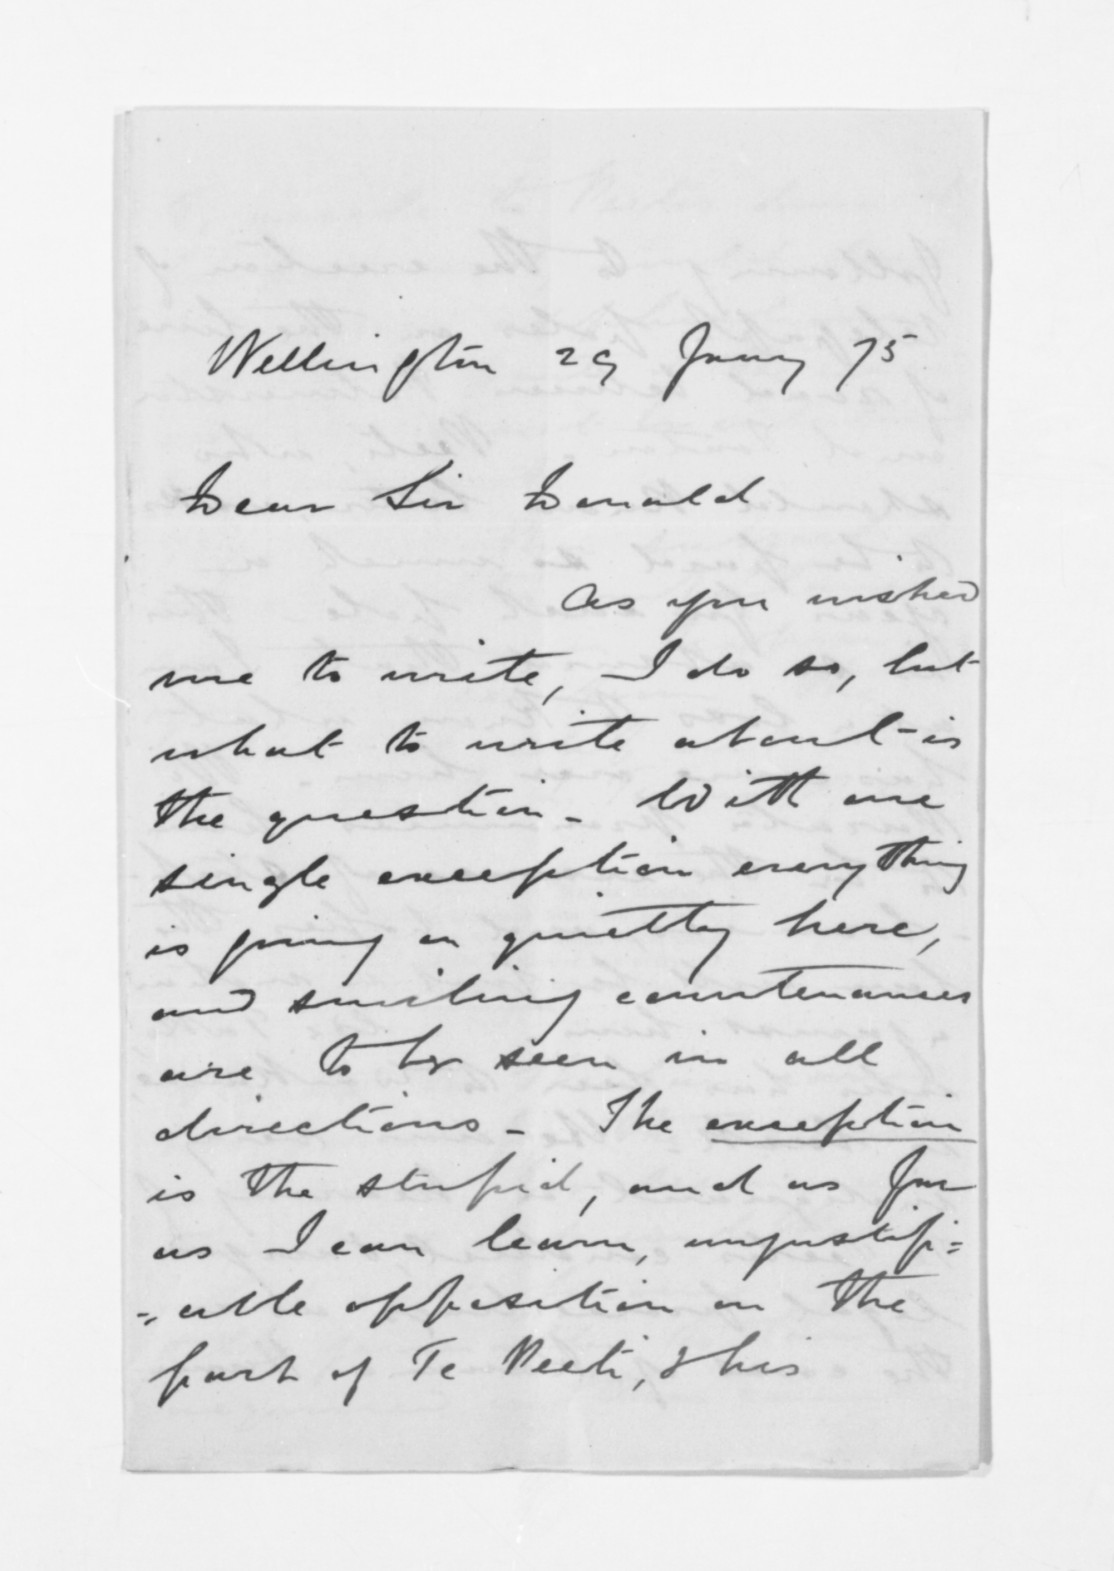 Wellington 29 Jany 75
Dear Sir Donald
As you wished
me to write, I do so, but
what to write about is
the question - With one
single exception everything
is going on quietly here,
and smiling countenances
are to be seen in all
directions - The exception
is the stupid, and as far
as I can learn, unjustifi=
=able opposition on the
part of Te Weeti, & his